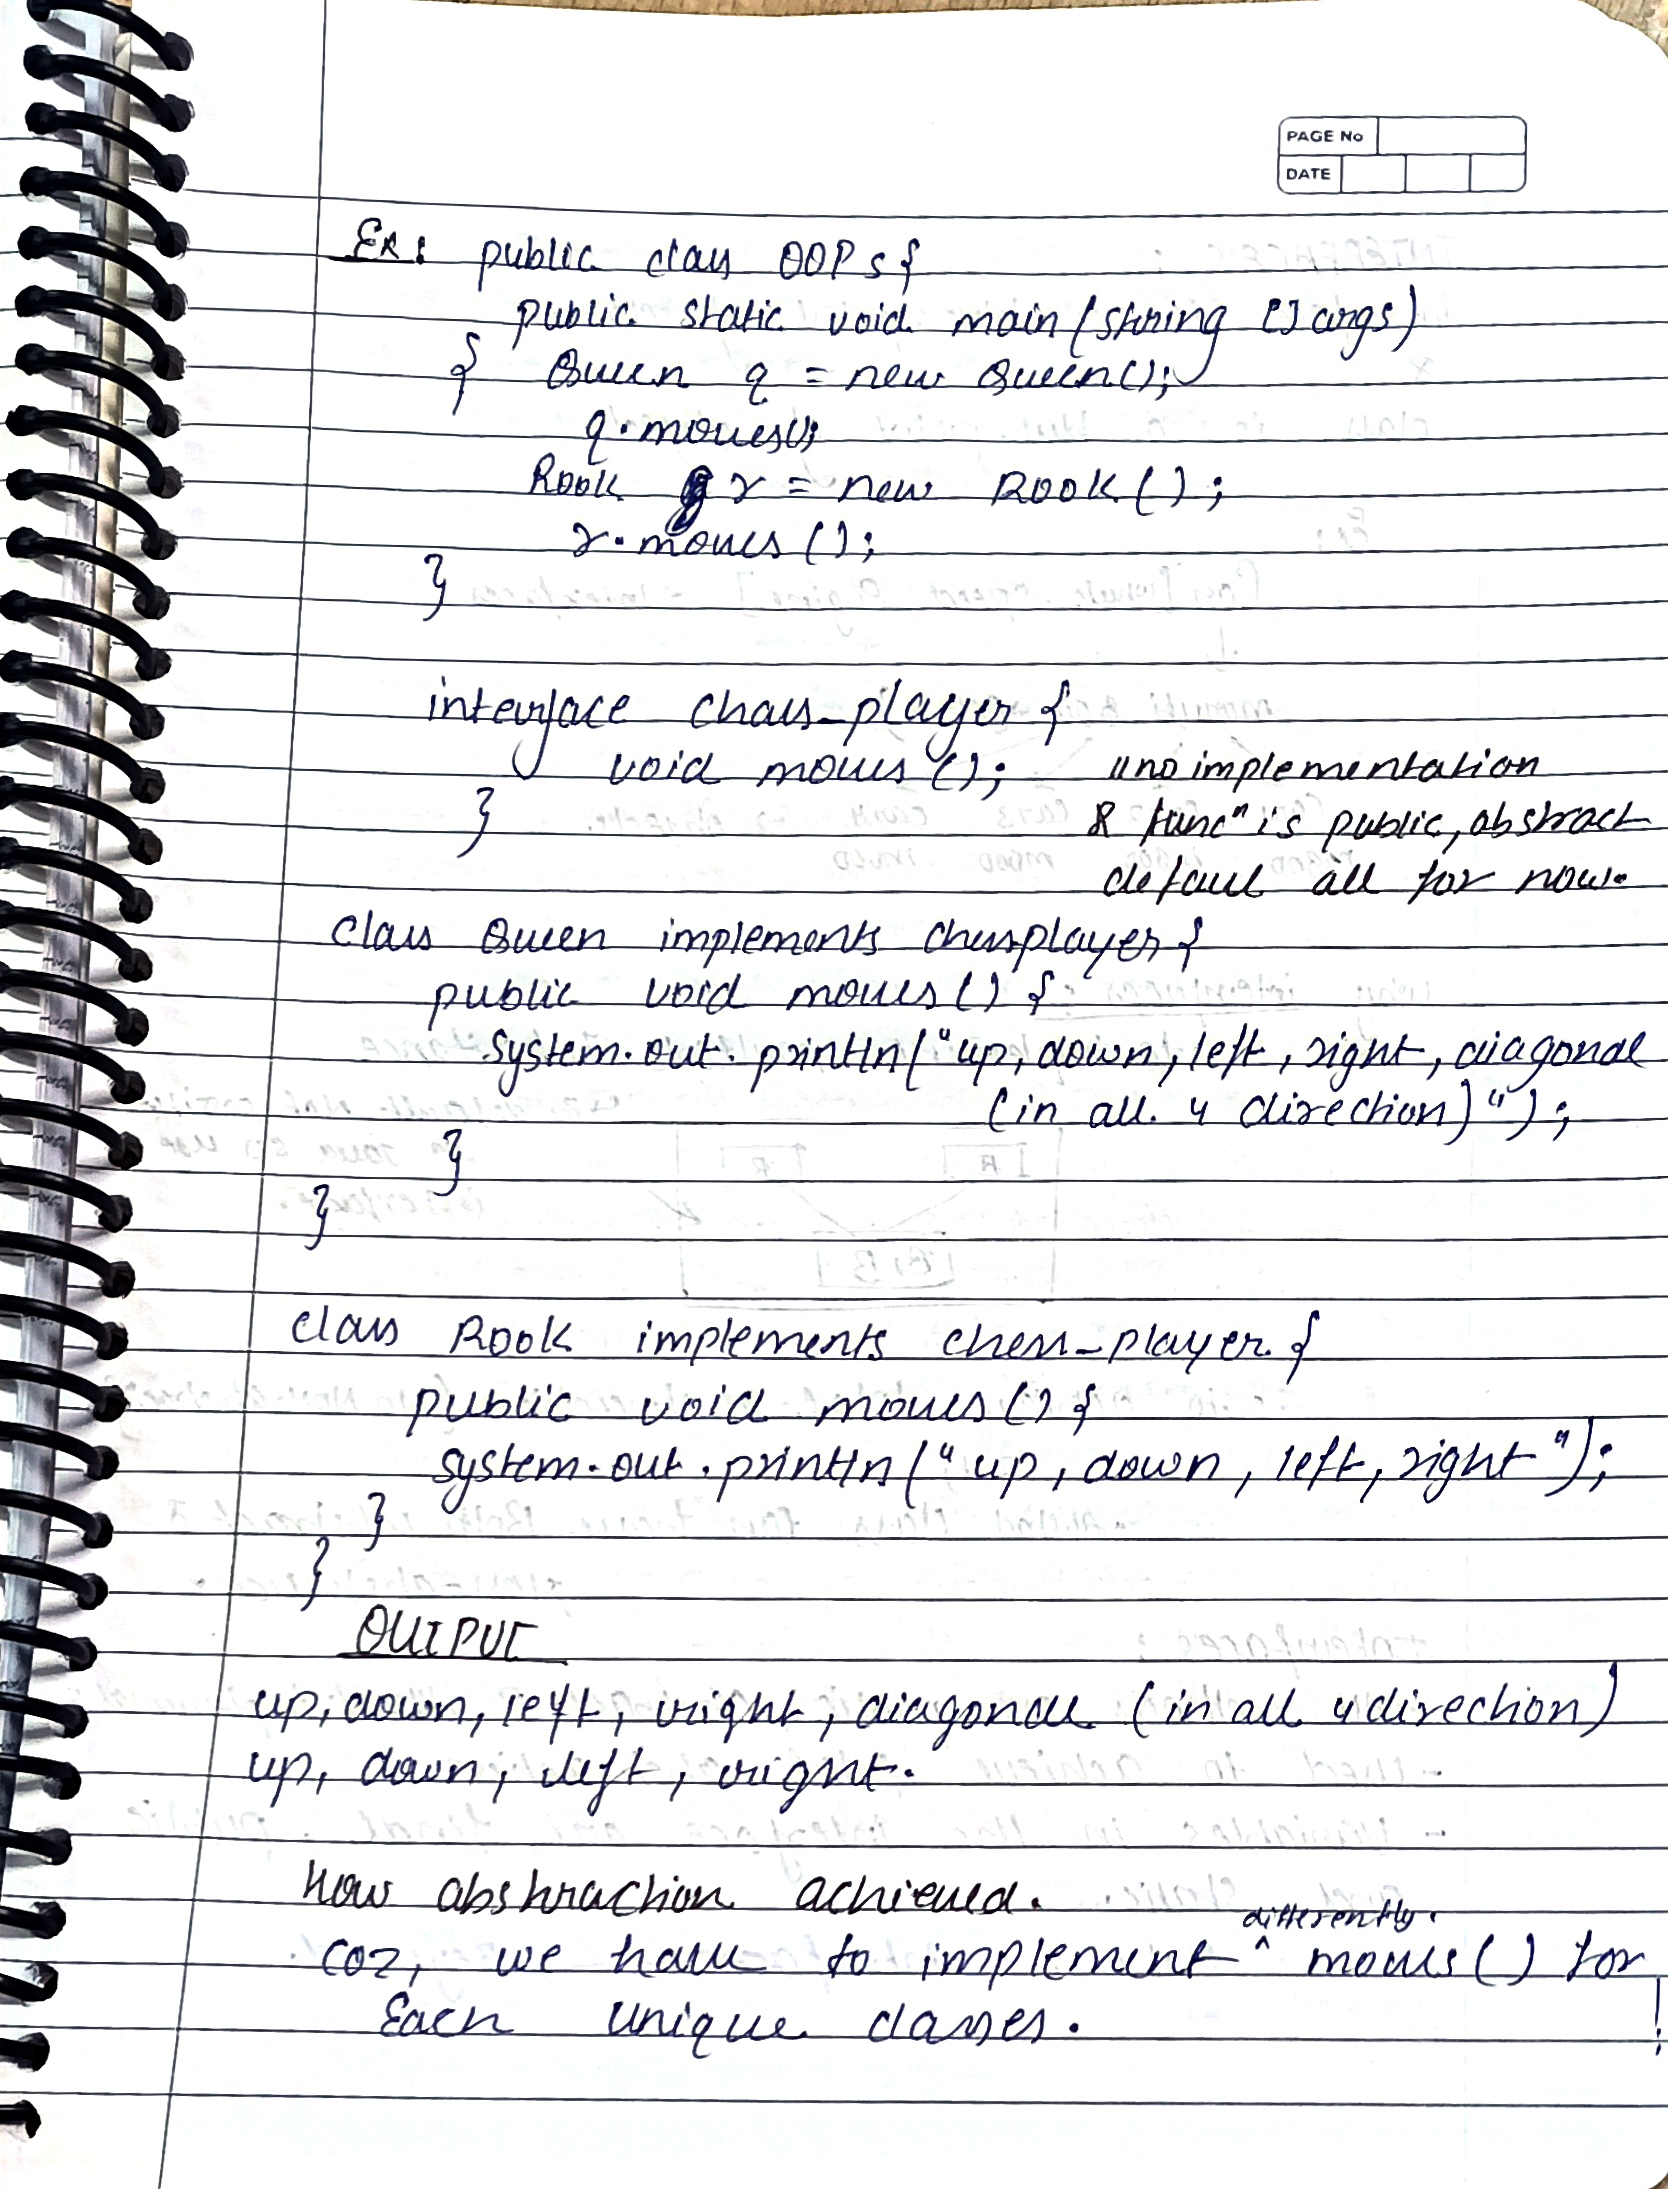 PAGE No
DATE
Ex: public class OOPs{
public static void main(string [] args)
{ Queen q = new Queen();
q.moves();
Rook r = new Rook();
r.moves();
}
interface chass_player {
void moves();   //no implementation
}   & funcⁿ is public, abstract
default all for now.
class Queen implements chessplayer {
public void moves() {
System.out.println("up, down, left, right, diagonal
(in all 4 direction)");
}
}
class Rook implements chess_player {
public void moves() {
system.out.println("up, down, left, right");
}
}
OUTPUT
up, down, left, right, diagonal (in all 4 direction)
up, down, left, right.
How abstraction achieved.
differently.
coz, we have to implement ^ moves() for
Each unique classes.